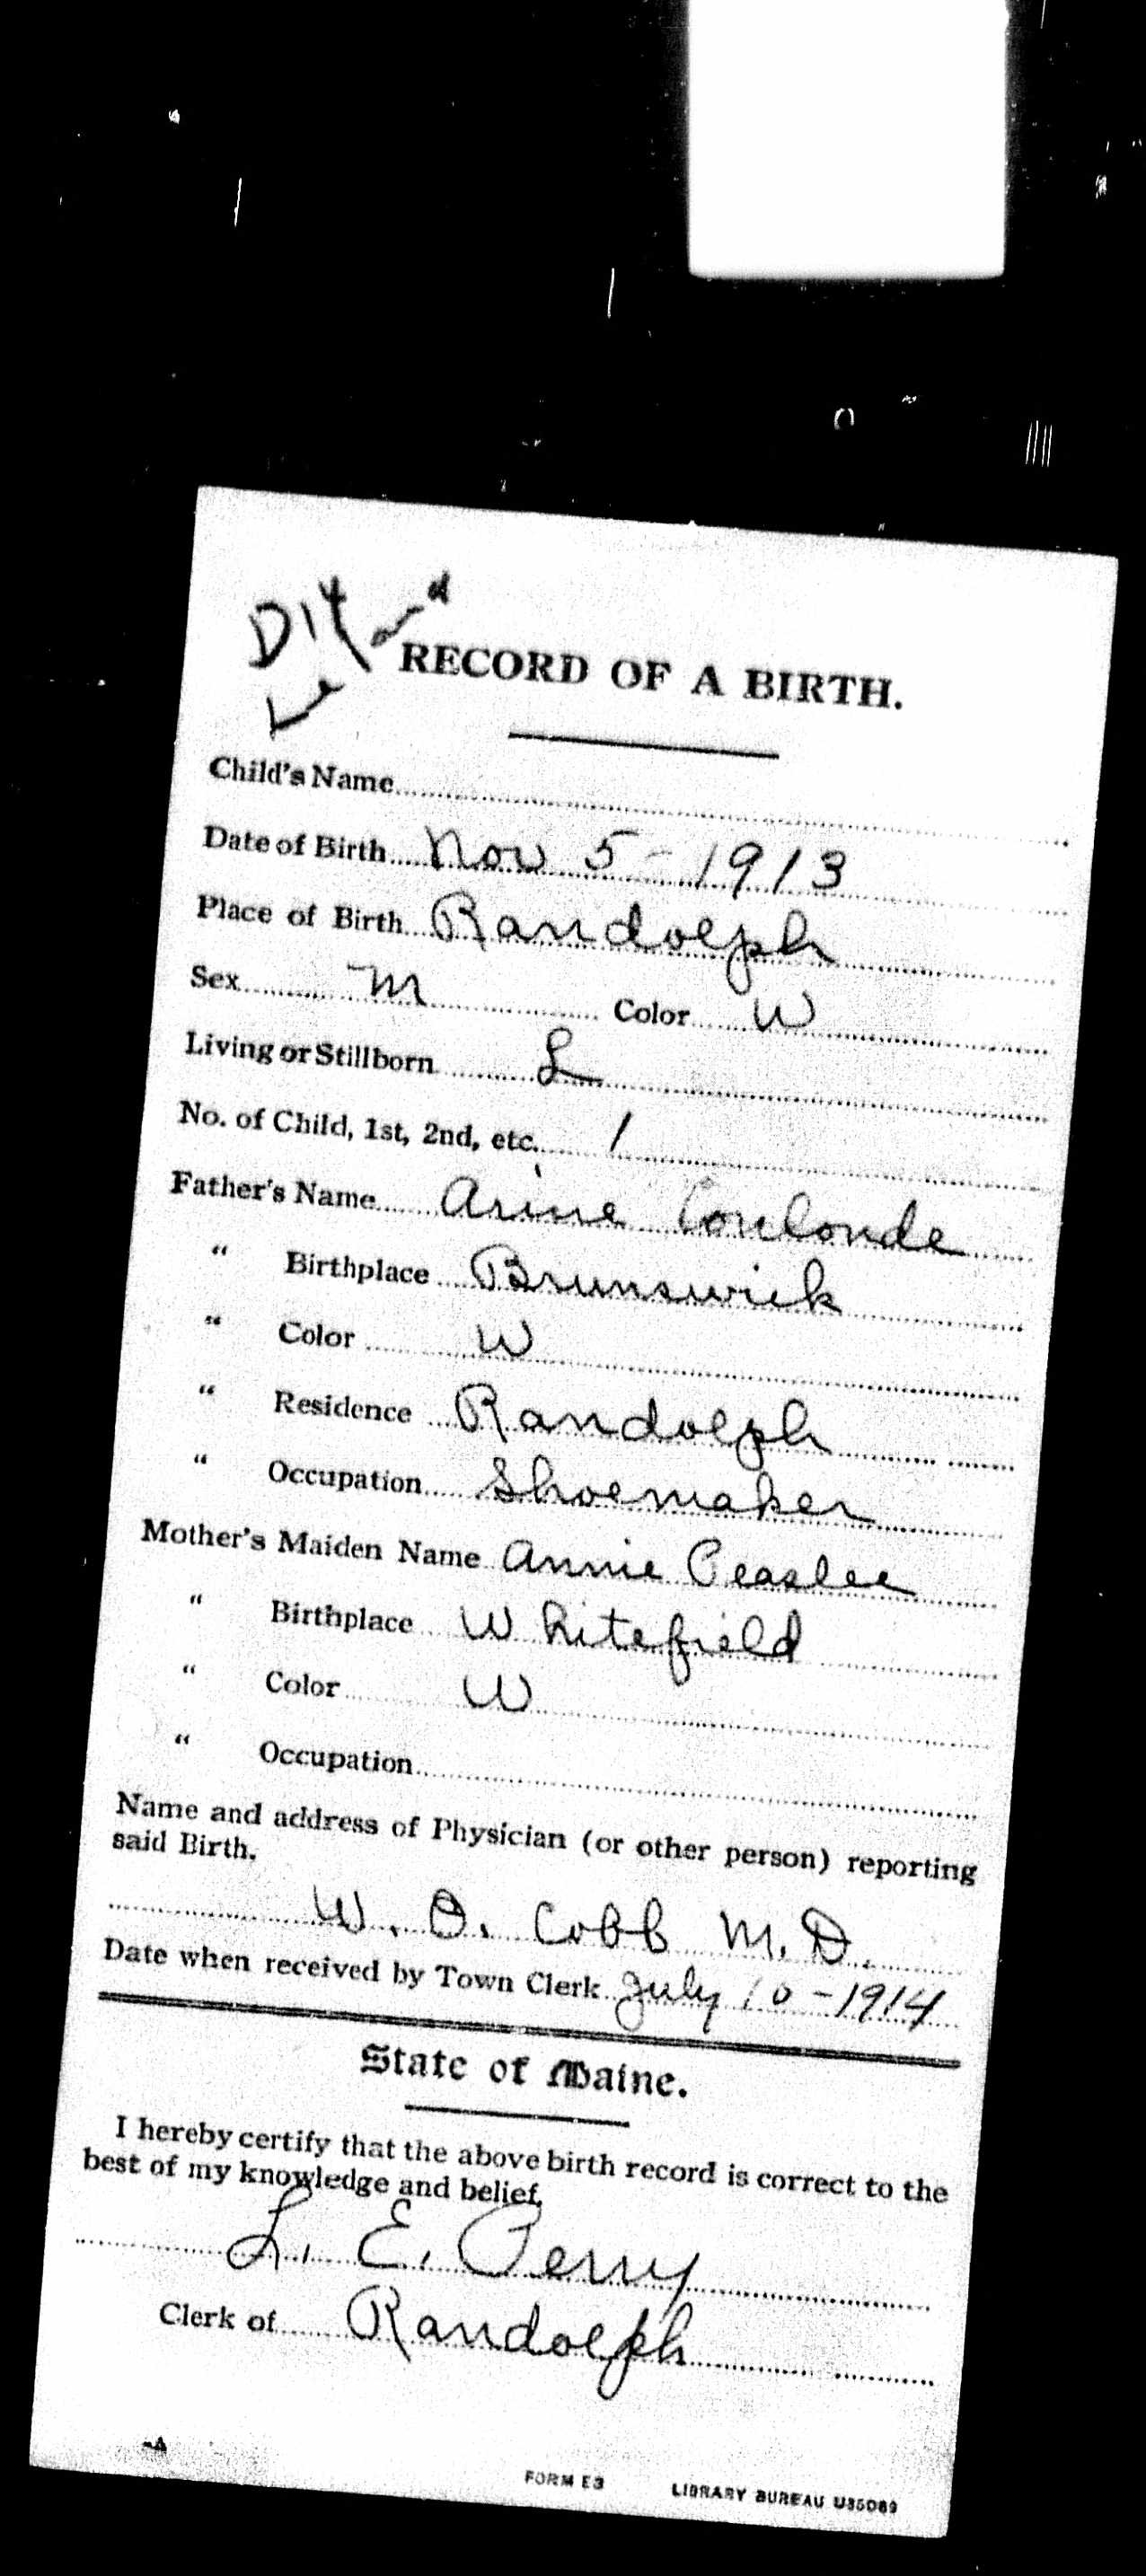 RECORD OF A BIRTH.
Child's Name
Date of Birth Nov 5 - 1913
Place of Birth Randolph
Sex M Color W
Living or Stillborn L
No. of Child, 1st, 2nd, etc. 1
Father's Name Arine Coulonde
" Birthplace Brunswick
" Color W
" Residence Randolph
" Occupation Shoemaker
Mother's Maiden Name Annie Peaslee
" Birthplace Whitefield
" Color W
" Occupation
Name and address of Physician (or other person) reporting
said Birth.
W. O. Cobb M.D.
Date when received by Town Clerk July 10 - 1914
State of Maine.
I hereby certify that the above birth record is correct to the
best of my knowledge and belief.
L. E. Perry
Clerk of Randolph
FORM E3 LIBRARY BUREAU U35089